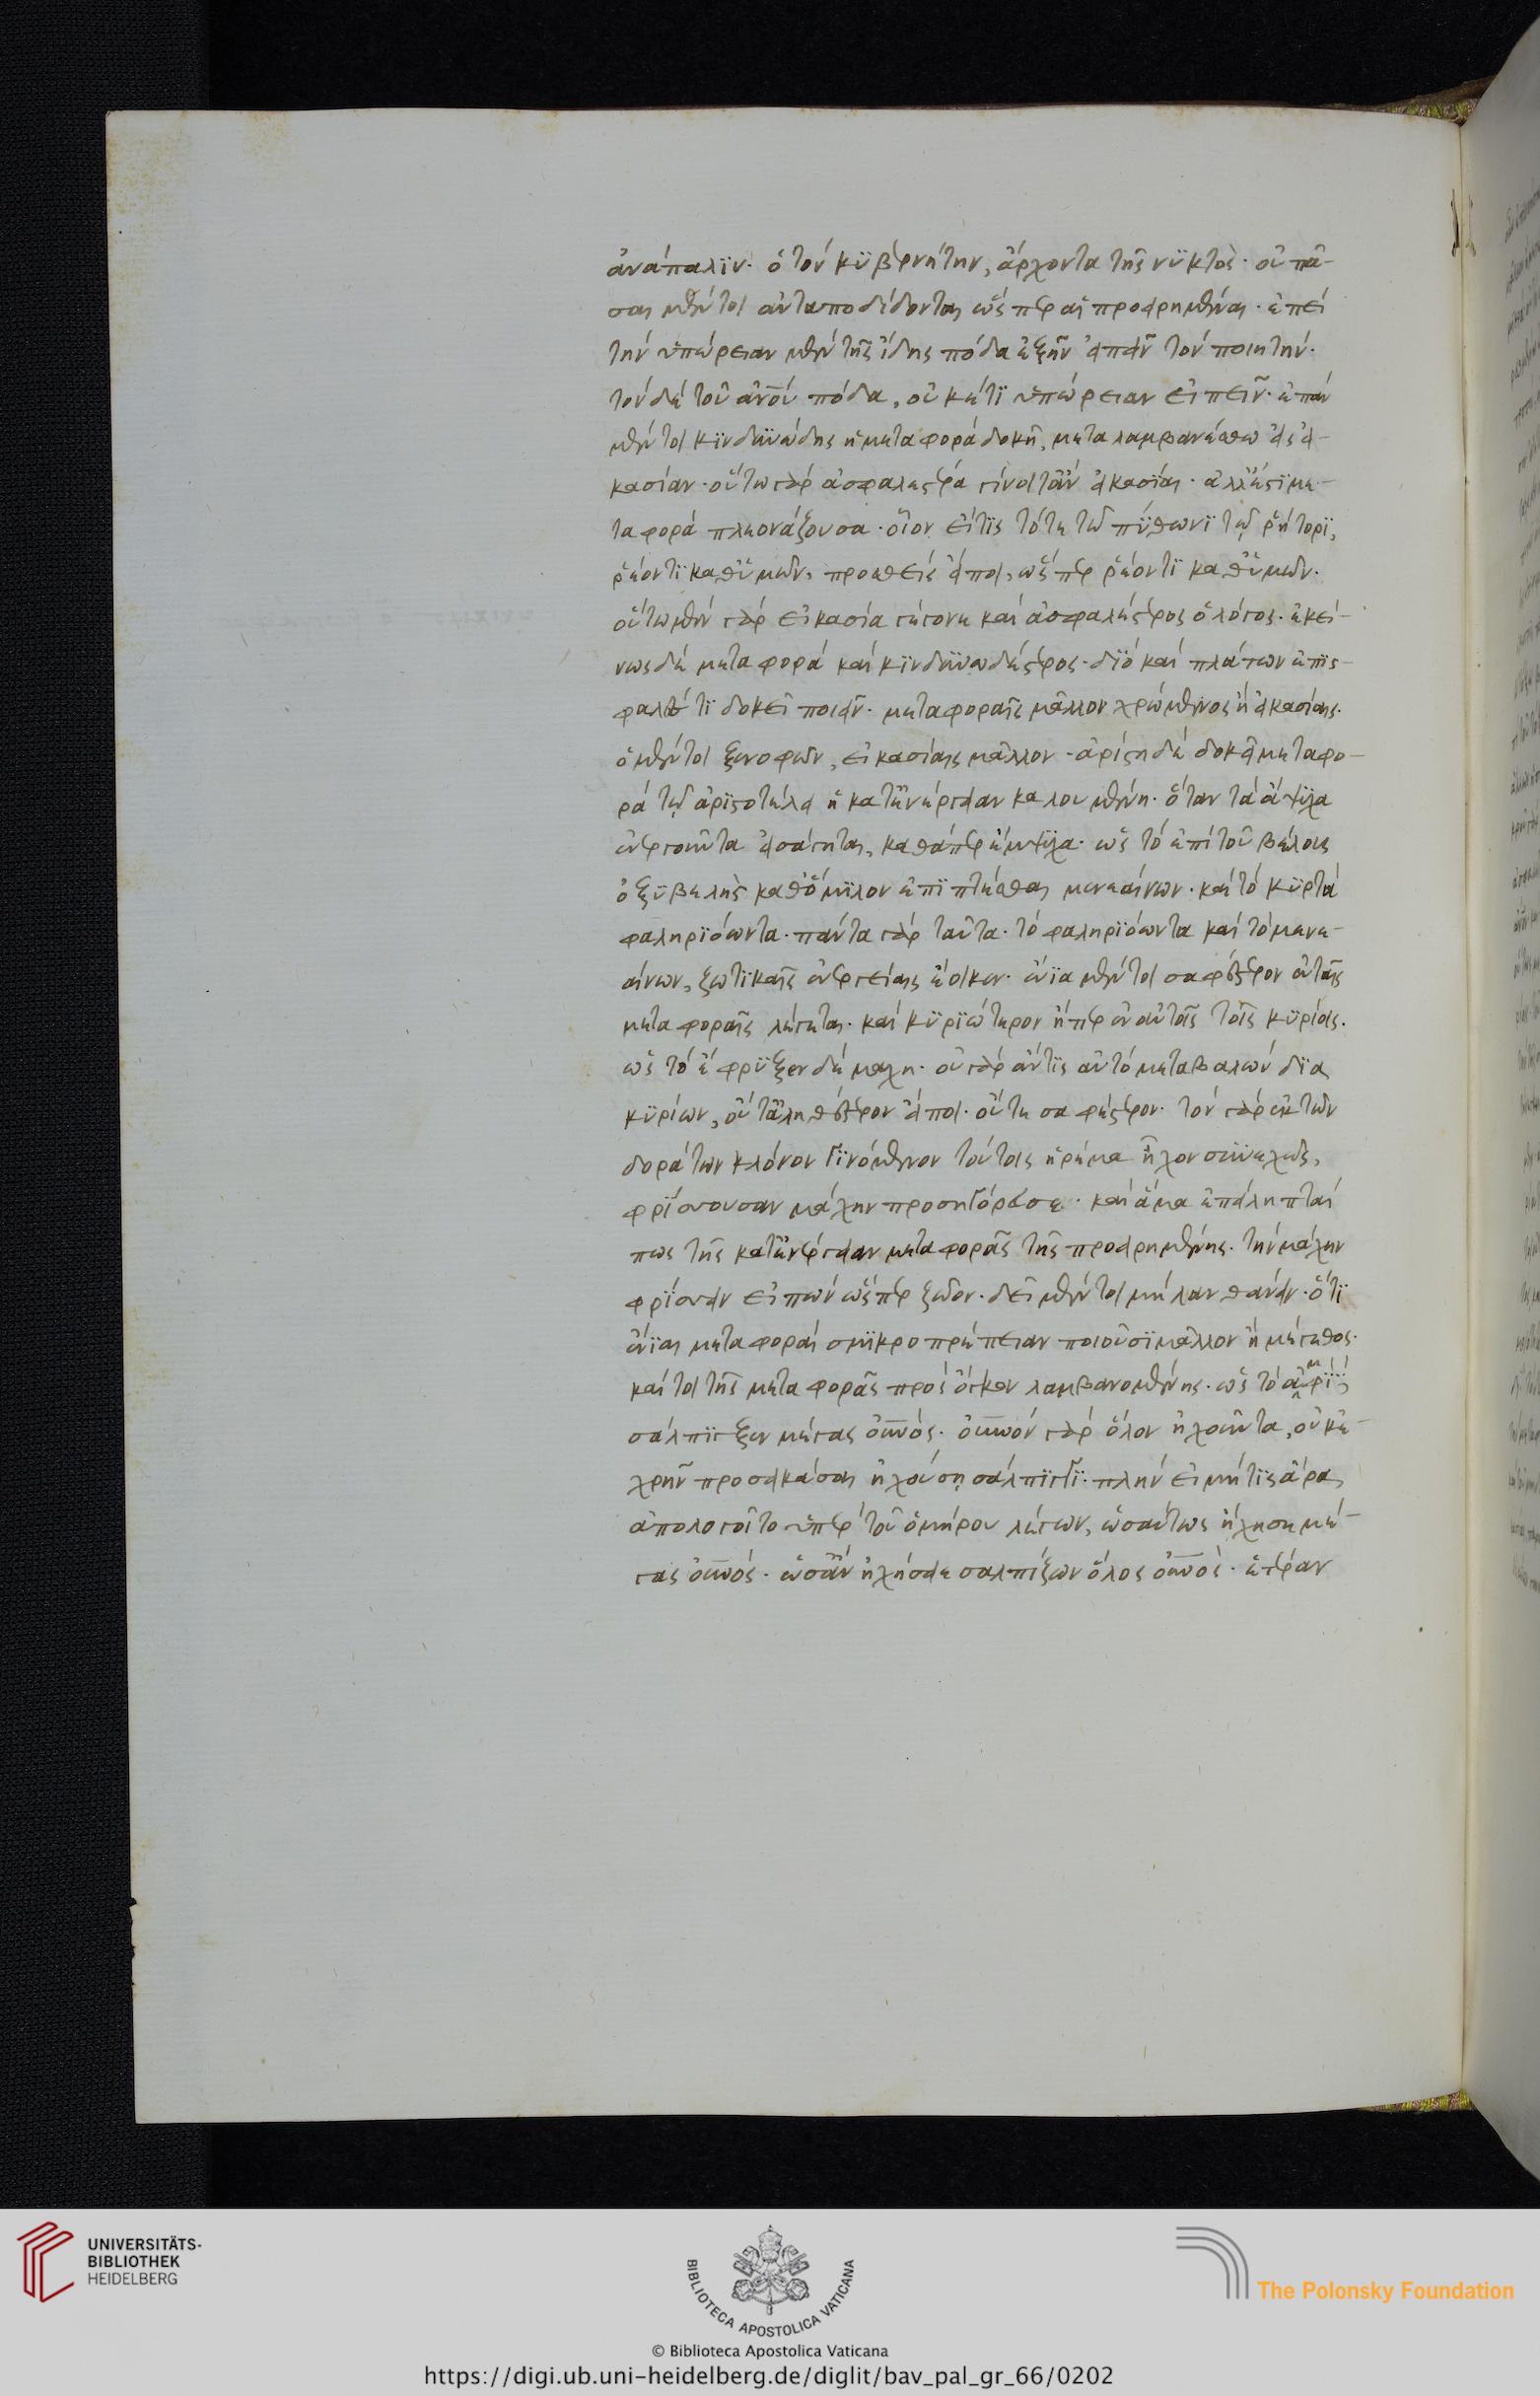 ἀνάπαλϊν· ὁ τὸν κϋβερνήτην, ἄρχοντα τῆς νϋκτὸς· οὐ πᾶ-
σαι μέντοι ἀνταποδίδονται ὥσπερ αἱ προειρημέναι· ἐπεὶ
τὴν ὑπώρειαν μὲν τῆς ἴδης πόδα ἐξῆν εἰπεῖν τὸν ποιητήν·
τὸν δὲ τοῦ ἀν̅ο̅υ̅ πόδα, οὐκέτϊ ὑπώρειαν εἰπεῖν· ἐπὰν
μέντοι κϊνδϋνώδης ἡ μεταφορὰ δοκῇ, μεταλαμβανέσθω εἰς εἰ-
κασίαν· οὕτω γὰρ ἀσφαλεστέρα γίνοιτ' ἂν· εἰκασία· ἀλλ' ἔστϊ με-
ταφορὰ πλεονάζουσα· οἷον εἴ τϊς τότε τῷ πΰθωνϊ τῷ ῥήτορϊ,
ῥέοντϊ καθ' ὑμῶν, προσθεὶς εἴποι, ὥσπερ ῥέοντϊ καθ' ὑμῶν·
οὕτω μὲν γὰρ εἰκασία γέγονε καὶ ἀσφαλέστερος ὁ λόγος· ἐκεί-
νως δὲ μεταφορὰ καὶ κϊνδϋνωδέστερος· δϊὸ καὶ πλάτων ἐπϊσ-
φαλές τϊ δοκεῖ ποιεῖν· μεταφοραῖς μᾶλλον χρώμενος ἢ εἰκασίαις·
ὁ μέντοι ξενοφῶν, εἰκασίαις μᾶλλον· ἀρίστη δὲ δοκεῖ μεταφο-
ρὰ τῷ ἀρϊστοτέλει ἡ κατ' ἐνέργειαν καλουμένη· ὅταν τὰ ἄψϋχα
ἐνεργοῦντα εἰσάγηται, καθάπερ ἔμψϋχα· ὡς τὸ ἐπὶ τοῦ βέλους
ὀξϋβελὴς καθ' ὅμϊλον ἐπϊπτέσθαι μενεαίνων· καὶ τὸ κϋρτὰ
φαληρϊόωντα· πάντα γὰρ ταῦτα· τὸ φαληρϊόωντα καὶ τὸ μενε-
αίνων, ζωτϊκαῖς ἐνεργείαις ἔοικεν· ἔνϊα μέντοι σαφέστερον ἐν ταῖς
μεταφοραῖς λέγεται· καὶ κϋρϊώτερον ἤπερ ἐν αὐτοῖς τοῖς κϋρίοις·
ὡς τὸ ἔφρϋξεν δὲ μάχη· οὐ γὰρ ἄν τϊς αὐτὸ μεταβαλὼν δϊὰ
κϋρίων, οὔτ' ἀληθέστερον εἴποι· οὔτε σαφέστερον· τὸν γὰρ ἐκ τῶν
δοράτων κλόνον γϊνόμενον τούτοις ἠρέμα ἦχον σϋνεχῶς,
φρΐσσουσαν μάχην προσηγόρευσε· καὶ ἅμα ἐπείληπταί
πως τῆς κατ' ἐνέργειαν μεταφορᾶς τῆς προειρημένης· τὴν μάχην
φρΐσσειν εἰπὼν ὥσπερ ζῶον· δεῖ μέντοι μὴ λανθάνειν· ὅτϊ
ἔνϊαι μεταφοραὶ σμϊκροπρέπειαν ποιοῦσϊ μᾶλλον ἢ μέγεθος·
καίτοι τῆς μεταφορᾶς πρὸς ὄγκον λαμβανομένης· ὡς τὸ ἀμφὶ
σάλπϊγξεν μέγας οὐν̅ός· οὐν̅ὸν γὰρ ὅλον ἠχοῦντα, οὐκ ἐ-
χρῆν προσεικάσαι ἠχούσῃ σάλπϊγγϊ· πλὴν εἰ μή τϊς ἄρα,
ἀπολογοῖτο ὑπὲρ τοῦ ὁμήρου λέγων, ὡσαύτως ἤχησε μέ-
γας οὐν̅ός· ὡς ἂν ἠχήσειε σαλπίζων ὅλος οὐν̅ὸς· ἑτέραν
UNIVERSITÄTS-
BIBLIOTHEK
HEIDELBERG
BIBLIOTECA APOSTOLICA VATICANA
The Polonsky Foundation
© Biblioteca Apostolica Vaticana
https://digi.ub.uni-heidelberg.de/diglit/bav_pal_gr_66/0202